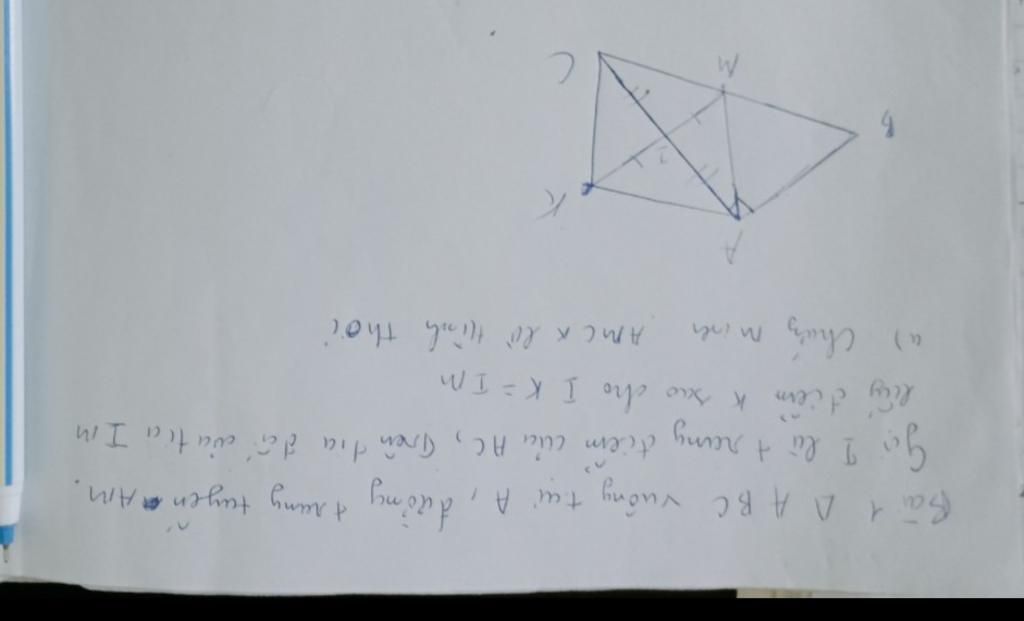 Bài 1 Δ ABC vuông tại A, đường trung tuyến AM.
Gọi I là trung điểm của AC, trên tia đối của tia IM
lấy điểm K sao cho IK = IM
a) Chứng minh AMCK là hình thoi
A
K
I
B
M
C